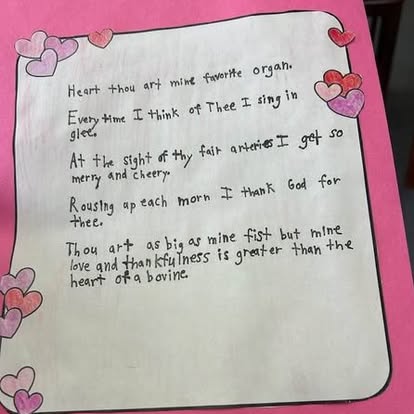 Heart thou art mine favorite organ.
Every time I think of Thee I sing in
glee.
At the sight of thy fair arteries I get so
merry and cheery.
Rousing up each morn I thank God for
thee.
Thou art as big as mine fist but mine
love and thankfulness is greater than the
heart of a bovine.